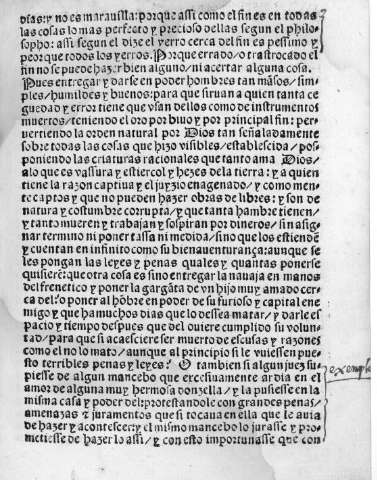 dias: y no es marauilla: porque assi como el fin es en todas
las cosas lo mas perfecto y precioso dellas segun el philo-
sopho: assi segun el dize el yerro cerca del fin es pessimo y
peor que todos los yerros. Porque errado/o trastrocado el
fin no se puede hazer bien alguno/ni acertar alguna cosa.
Pues entregar y darse en poder hombres tan māsos/sim-
ples/humildes y buenos: para que siruan a quien tanta ce
guedad y error tiene que vsan dellos como de instrumentos
muertos/teniendo el oro por biuo y por principal fin: per-
uertiendo la orden natural por Dios tan señaladamente
sobre todas las cosas que hizo visibles/establescida/pos-
poniendo las criaturas racionales que tanto ama Dios/
a lo que es vassura y estiercol y hezes de la tierra: y a quien
tiene la razon captiua y el juyzio enagenado/y como men-
tecaptos y que no pueden hazer obras de libres: y son de
natura y costumbre corrupta/y que tanta hambre tienen/
y tanto mueren y trabajan y sospiran por dineros/sin asi-
gnar termino ni poner tassa ni medida/sino que los estiendē
y cuentan en infinito como su bienauenturança: aunque se
les pongan las leyes y penas quales y quantas ponerse
quisierē: que otra cosa es sino entregar la nauaja en manos
del frenetico y poner la gargāta de vn hijo muy amado cer-
ca del: o poner al hōbre en poder de su furioso y capital ene
migo y que ha muchos dias que lo dessea matar/y darle es
pacio y tiempo despues que del ouiere cumplido su volun-
tad/para que si acaesciere ser muerto de escusas y razones
como el no lo mato/aunque al principio si le vuiessen pue-
sto terribles penas y leyes? O tambien si algun juez su-
piesse de algun mancebo que excessiuamente ardia en el
exemplo
amor de alguna muy hermosa donzella/y la pusiesse en la
misma casa y poder del: protestandole con grandes penas/
amenazas t juramentos que si tocaua en ella que le auia
de hazer y acontescer: y el mismo mancebo lo jurasse y pro-
metiesse de hazer lo assi/y con esto importunasse que con